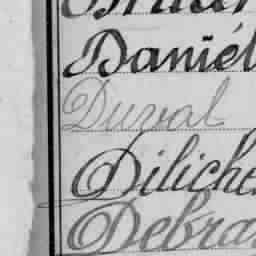 Daniel
Duval
Diliche
Debra